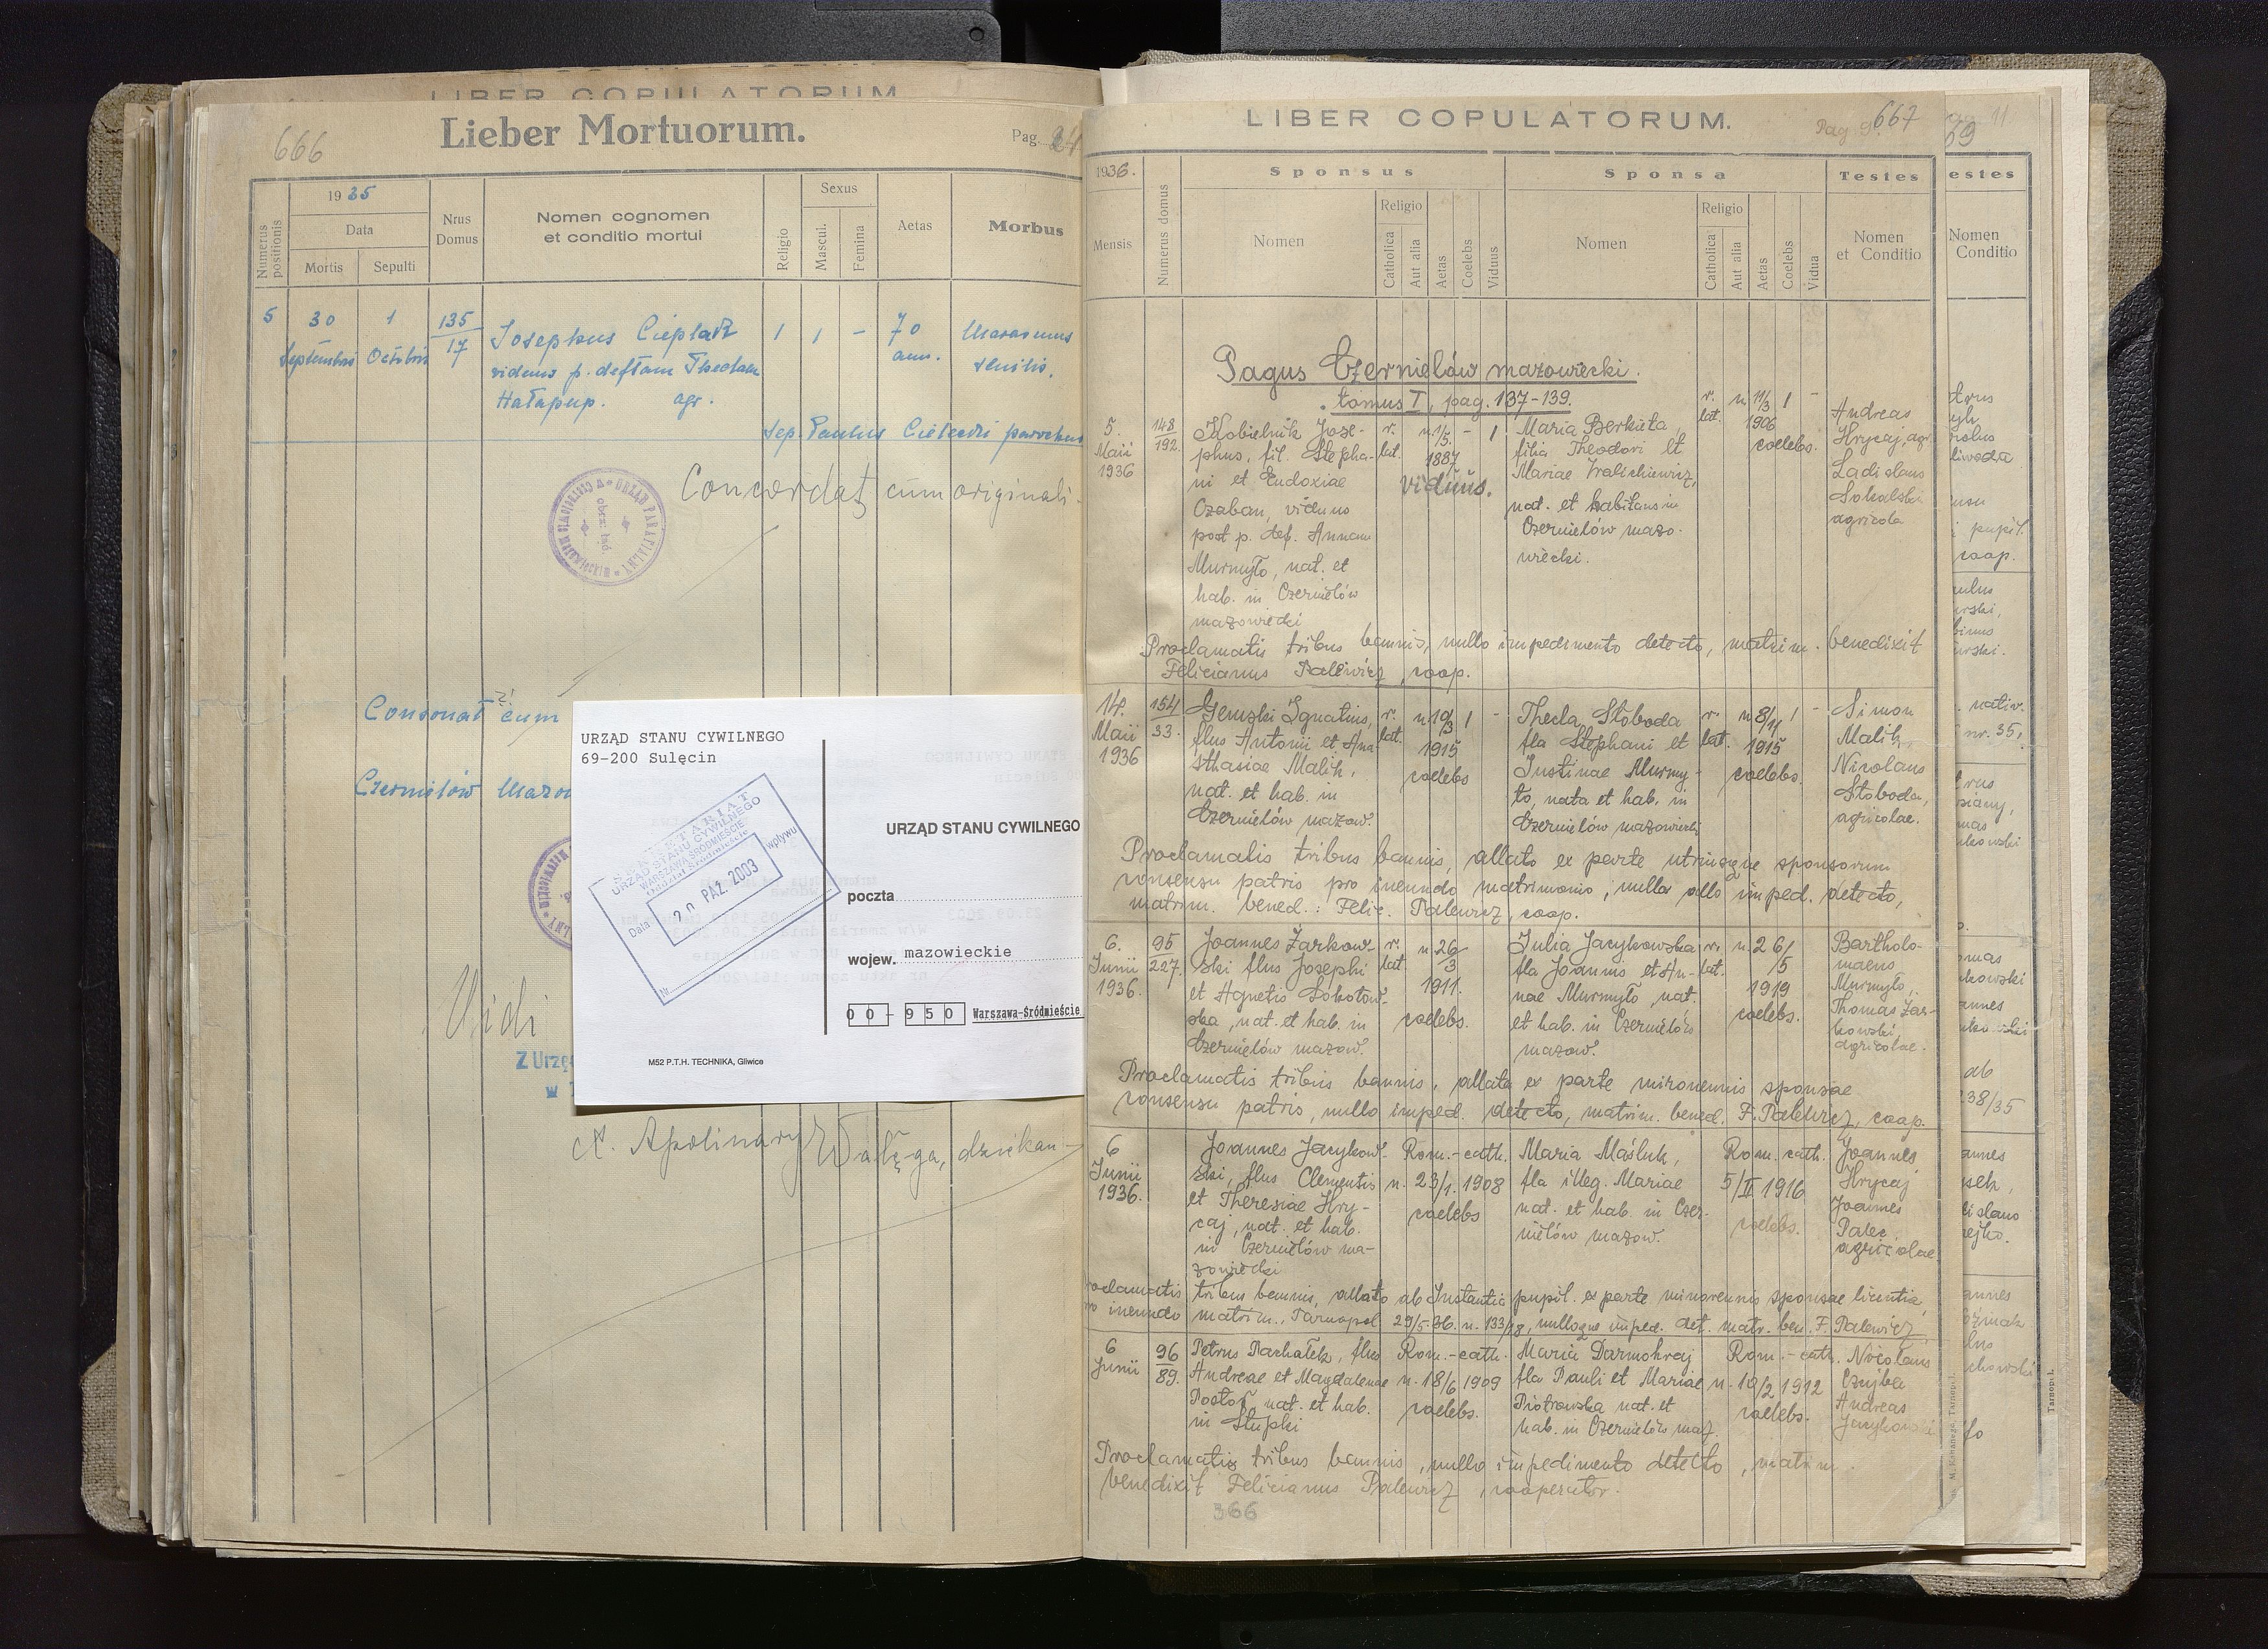 LIBER COPULATORUM
666
Lieber Mortuorum.
Pag.
Numerus positionis
1935
Data
Mortis
Sepulti
Nrus Domus
Nomen cognomen
et conditio mortui
Religio
Sexus
Mascul.
Femina
Aetas
Morbus
5
30 Septembris
1 Octobris
135/17
Josephus Cieplak
viduus p. deftam Theclam
Hałapup. agr.
1
1
-
70 ann.
Marasmus
senilis.
sep. Paulus Cielecki parochus
Concordat cum originali
Consonat cum
Czernielów Mazo
Vidi
Z Urzę
w
X. Apolinary Wałęga, dziekan
URZĄD STANU CYWILNEGO
69-200 Sulęcin
URZĄD STANU CYWILNEGO
WARSZAWA ŚRÓDMIEŚCIE
Data
20 PAŹ. 2003
wpływu
Nr
URZĄD STANU CYWILNEGO
poczta
wojew. mazowieckie
00-950 Warszawa-Śródmieście
M52 P.T.H. TECHNIKA, Gliwice
LIBER COPULATORUM.
Pag. 9.
667
1936.
Mensis
Numerus domus
Sponsus
Nomen
Religio
Catholica
Aut alia
Aetas
Coelebs
Viduus
Sponsa
Nomen
Religio
Catholica
Aut alia
Aetas
Coelebs
Vidua
Testes
Nomen
et Conditio
Pagus Czernielów mazowiecki.
tomus I, pag. 137-139.
5.
Maii
1936
148/192.
Kobielnik Jose-
phus, fil. Stepha-
ni et Eudoxiae
Czaban, viduus
post p. def. Annam
Murmyło, nat. et
hab. in Czernielów
mazowiecki
r. lat.
n. 1/5. 1887
- 1
viduus.
Maria Berkieta,
filia Theodori et
Mariae Walichiewicz,
nat. et habitans in
Czernielów mazo-
wiecki.
r. lat.
n. 11/3 1906
1 -
coelebs.
Andreas
Hrycaj, agr.
Ladislaus
Sokalski
agricola
Proclamatis tribus bannis, nullo impedimento detecto, matrim. benedixit
Felicianus Palewicz, coop.
14.
Maii
1936
154/33.
Gemski Ignatius,
flus Antonii et Ana-
sthasiae Malik,
nat. et hab. in
Czernielów mazow.
r. lat.
n. 10/3 1915
1 -
coelebs
Thecla Słoboda
fla Stephani et
Justinae Murmy-
ło, nata et hab. in
Czernielów mazowiecki
r. lat.
n. 8/11 1915
1 -
coelebs.
Simon
Malik,
Nicolaus
Słoboda,
agricolae.
Proclamatis tribus bannis, allato ex parte utriusque sponsorum
consensu patris pro ineundo matrimonio, nullo allo imped. detecto,
matrim. bened.: Felic. Palewicz, coop.
6.
Junii
1936.
95/227.
Joannes Żarkow-
ski flus Josephi
et Agnetis Sokołow-
ska, nat. et hab. in
Czernielów mazow.
r. lat.
n. 26/3 1911.
coelebs.
Julia Jacykowska
fla Joannis et An-
nae Murmyło, nat.
et hab. in Czernielów
mazow.
r. lat.
n. 26/5 1919
coelebs.
Bartholo-
maeus
Murmyło,
Thomas Żar-
kowski,
agricolae.
Proclamatis tribus bannis, allata ex parte minorennis sponsae
consensu patris, nullo imped. detecto, matrim. bened. F. Palewicz, coop.
6
Junii
1936.
Joannes Jacykow-
ski, flus Clementis
et Theresiae Hry-
caj, nat. et hab.
in Czernielów ma-
zowiecki
Rom.-cath.
n. 23/1. 1908
coelebs
Maria Maśluk,
fla illeg. Mariae
nat. et hab. in Czer-
nielów mazow.
Rom. cath.
5/II 1916
coelebs.
Joannes
Hrycaj
Joannes
Palec
agricolae
roclamatis tribus bannis, allato ab Instantia pupil. ex parte minorennis sponsae licentia,
ro ineundo matrim., Tarnopol 29/5-36. n. 133/18, nulloque imped. det. matr. ben. F. Palewicz
6
Junii
96/89.
Petrus Pachałek, flus
Andreae et Magdalenae
Postoł, nat. et hab.
in Stupki
Rom.-cath.
n. 18/6 1909
coelebs.
Maria Darmohraj
fla Pauli et Mariae
Piotrowska nat. et
hab. in Czernielów maz.
Rom.-cath.
n. 10/2 1912
coelebs.
Nicolaus
Czujba
Andreas
Jacykowski
Proclamatis tribus bannis, nullo impedimento detecto, matrim.
benedixit Felicianus Palewicz, cooperator.
366
11
69
estes
Nomen
Conditio
pupil.
coop.
nativ.
nr. 35,
ab
238/35